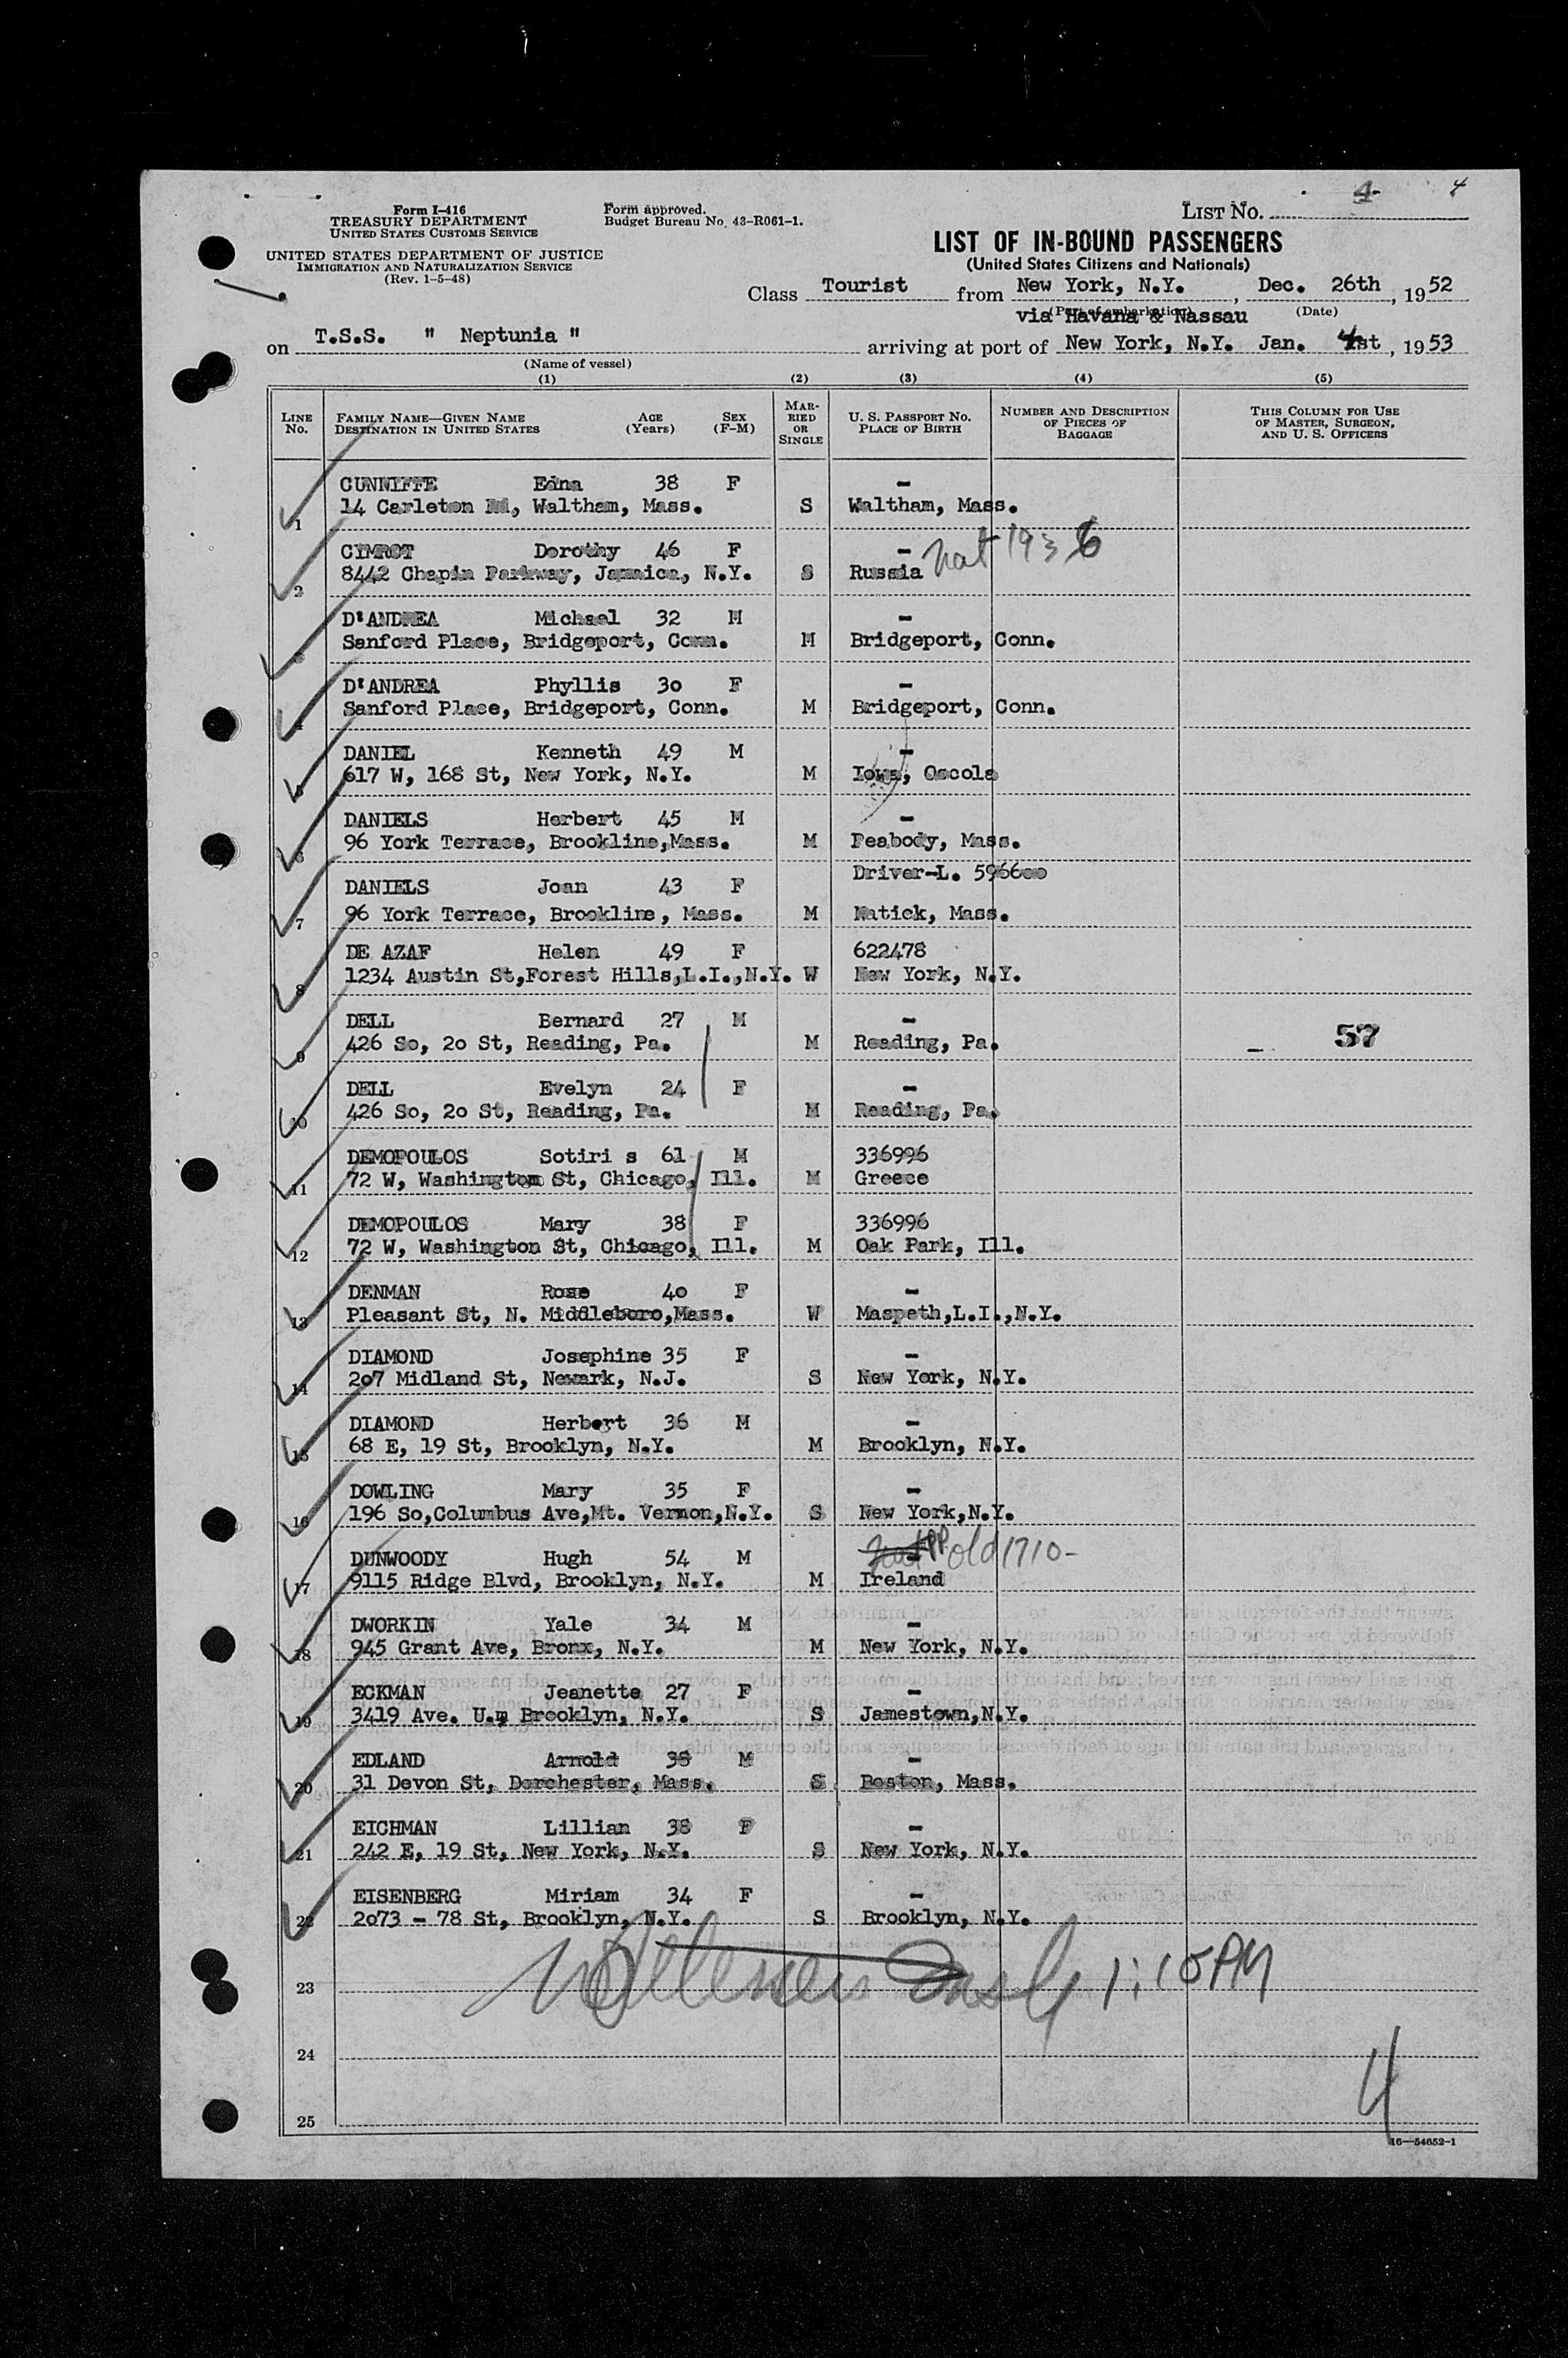 4 4
Form I-416
TREASURY DEPARTMENT
UNITED STATES CUSTOMS SERVICE
UNITED STATES DEPARTMENT OF JUSTICE
IMMIGRATION AND NATURALIZATION SERVICE
(Rev. 1-5-48)
Form approved.
Budget Bureau No. 43-R061-1.
LIST NO.
LIST OF IN-BOUND PASSENGERS
(United States Citizens and Nationals)
Class Tourist from New York, N.Y., Dec. 26th, 1952
(Port of embarkation) (Date)
via Havana & Nassau
on T.S.S. " Neptunia " arriving at port of New York, N.Y. Jan. 4st, 1953
(Name of vessel)
(1) (2) (3) (4) (5)
LINE No. FAMILY NAME—GIVEN NAME DESTINATION IN UNITED STATES AGE (Years) SEX (F-M) MARRIED OR SINGLE U. S. PASSPORT NO. PLACE OF BIRTH NUMBER AND DESCRIPTION OF PIECES OF BAGGAGE THIS COLUMN FOR USE OF MASTER, SURGEON, AND U. S. OFFICERS
CUNNIFFE Edna 38 F -
1 14 Carleton Rd, Waltham, Mass. S Waltham, Mass.
CIMROT Dorothy 46 F - nat 1936
2 8442 Chapin Parkway, Jamaica, N.Y. S Russia
D'ANDREA Michael 32 M -
Sanford Place, Bridgeport, Conn. M Bridgeport, Conn.
D'ANDREA Phyllis 30 F -
Sanford Place, Bridgeport, Conn. M Bridgeport, Conn.
DANIEL Kenneth 49 M -
617 W, 168 St, New York, N.Y. M Iowa, Oscola
DANIELS Herbert 45 M -
6 96 York Terrace, Brookline,Mass. M Peabody, Mass.
DANIELS Joan 43 F Driver-L. 596600
7 96 York Terrace, Brookline, Mass. M Natick, Mass.
DE AZAF Helen 49 F 622478
8 1234 Austin St,Forest Hills,L.I.,N.Y. W New York, N.Y.
DELL Bernard 27 M -
9 426 So, 2o St, Reading, Pa. M Reading, Pa. 57
DELL Evelyn 24 F -
10 426 So, 2o St, Reading, Pa. M Reading, Pa.
DEMOPOULOS Sotiri s 61 M 336996
11 72 W, Washington St, Chicago, Ill. M Greece
DEMOPOULOS Mary 38 F 336996
12 72 W, Washington St, Chicago, Ill. M Oak Park, Ill.
DENMAN Rose 4o F -
13 Pleasant St, N. Middleboro,Mass. W Maspeth,L.I.,N.Y.
DIAMOND Josephine 35 F -
14 2o7 Midland St, Newark, N.J. S New York, N.Y.
DIAMOND Herbert 36 M -
15 68 E, 19 St, Brooklyn, N.Y. M Brooklyn, N.Y.
DOWLING Mary 35 F -
16 196 So,Columbus Ave,Mt. Vernon,N.Y. S New York,N.Y.
DUNWOODY Hugh 54 M PP old 1710-
17 9115 Ridge Blvd, Brooklyn, N.Y. M Ireland
DWORKIN Yale 34 M -
18 945 Grant Ave, Bronx, N.Y. M New York, N.Y.
ECKMAN Jeanette 27 F -
19 3419 Ave. U.m Brooklyn, N.Y. S Jamestown,N.Y.
EDLAND Arnold 38 M -
20 31 Devon St, Dorchester, Mass. S Boston, Mass.
EICHMAN Lillian 38 F -
21 242 E, 19 St, New York, N.Y. S New York, N.Y.
EISENBERG Miriam 34 F -
22 2o73 - 78 St, Brooklyn, N.Y. S Brooklyn, N.Y.
23 1:10PM
24
25
4
16—54652-1